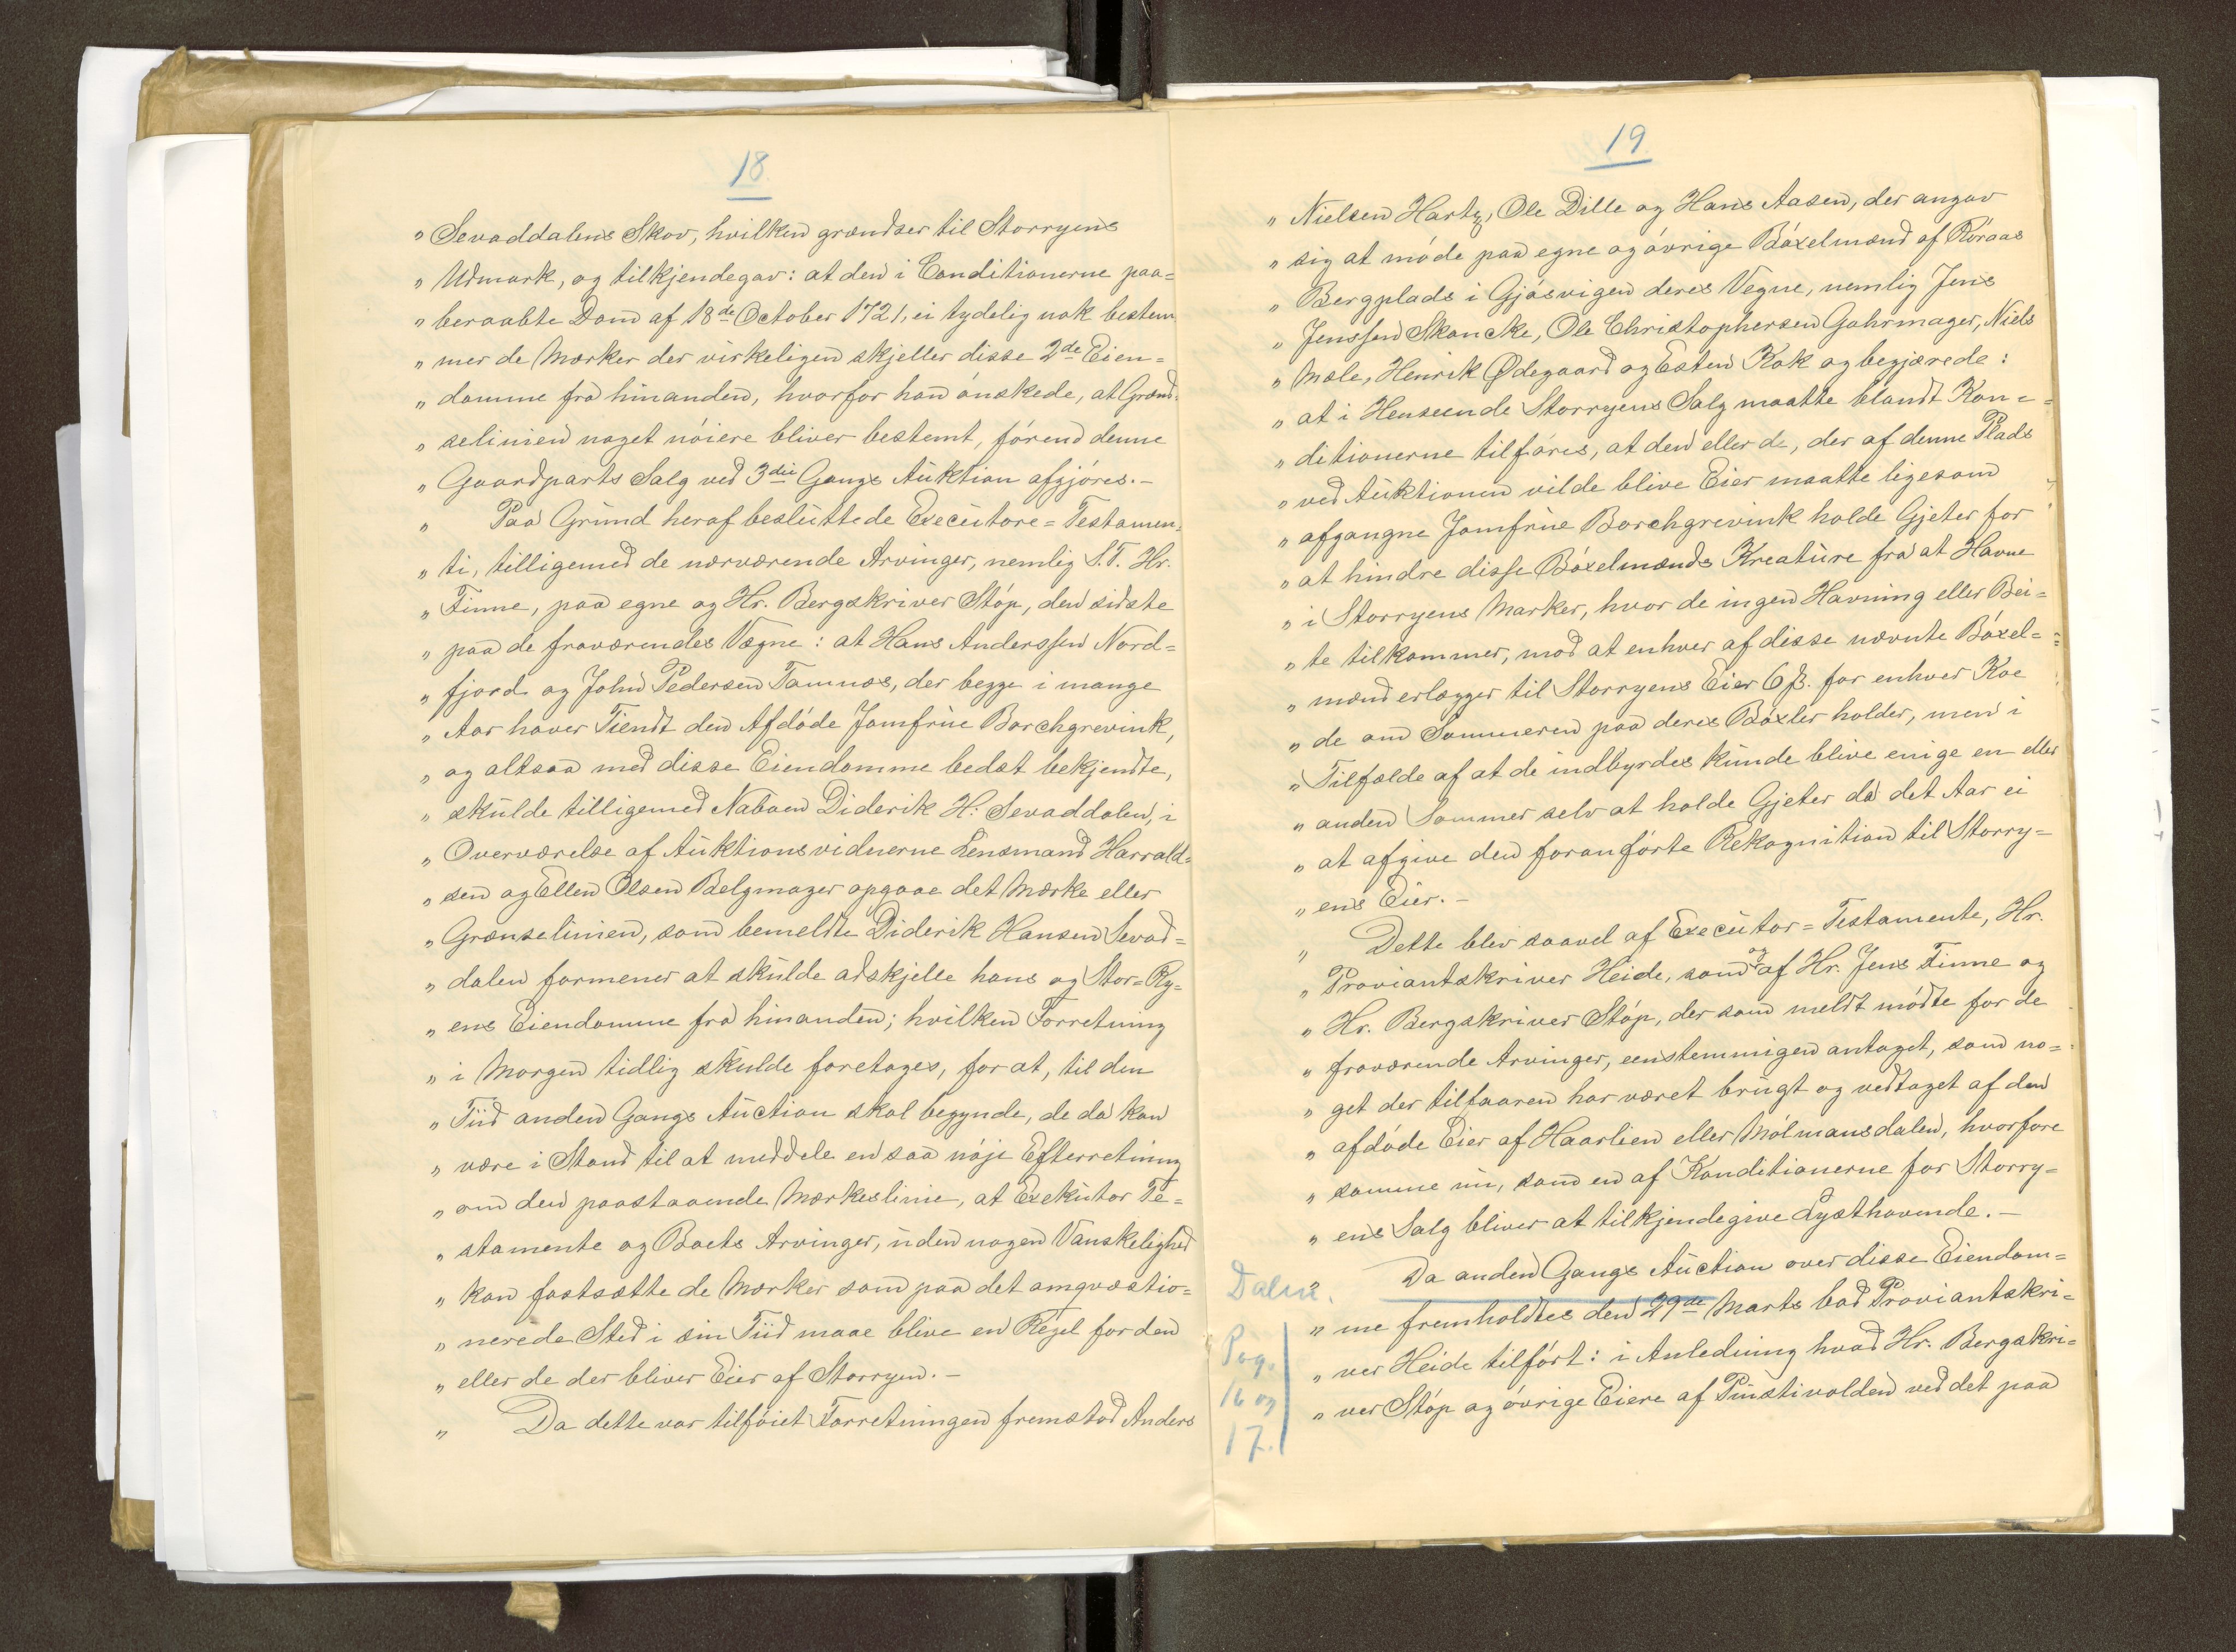 18
„ Sevaddalens Skov, hvilken grændser til Storryens
„ Udmark, og tilkjendegav: at den i Conditionerne paa=
„ beraabte Dom af 18de October 1721, ei tydelig nok bestem
„ mer de Mærker der virkeligen skjeller disse 2de Eien=
„ domme fra hinanden, hvorfor han ønskede, at Grænd=
„ selinien noget nóiere bliver bestemt, fórend denne
„ Gaardparts Salg ved 3die Gangs Auktion afgjóres.-
„ Paa Grund heraf besluttede Executore=Testamen=
„ ti, tilligemed de nærværende Arvinger, nemlig S.T. Hr.
„ Finne, paa egne og Hr. Bergskriver Stóp, den sidste
„ paa de fraværendes Vægne: at Hans Anderssen Nord=
„ fjord og John Pedersen Tamnæs, der begge i mange
„ Aar haver Tiendt den Afdóde Jomfrue Borchgrevink,
„ og altsaa med disse Eiendomme bedst bekjendte,
„ skulde tilligemed Naboen Diderik H: Sevaddalen, i
„ Overværelse af Auktionsvidnerne Lensmand Harrald=
„ sen og Ellen Olsen Belgmager opgaae det Mærke eller
„ Grænselinien, som bemeldte Diderik Hansen Sevad=
„ dalen formener at skulde adskjelle hans og Stor=Ry=
„ ens Eiendomme fra hinanden; hvilken Forretning
„ i Morgen tidlig skulde foretages, for at, til den
„ Tiid anden Gangs Auction skal begynde, de da kan
„ være i Stand til at meddele en saa nóje Efterretning
„ om den paastaaende Mærkeslinie, at Exekutor Te=
„ stamente og Boets Arvinger, uden nogen Vanskelighed
„ kan fastsætte de Mærker som paa det omqvæstio=
„ nerede Sted i sin Tiid maae blive en Regel for den
„ eller de der bliver Eier af Storryen.-
„ Da dette var tilfóiet Forretningen fremstod Anders
19
„ Nielsen Hartz, Ole Dille og Hans Aasen, der angav
„ sig at móde paa egne og óvrige Bóxelmænd af Róraas
„ Bergplads i Gjósvigen deres Vegne, nemlig Jens
„ Jenssen Skancke, Ole Christophersen Gahrmager, Niels
„ Mæle, Henrik Ødegaard og Esten Kok og begjærede:
„ at i Henseende Storryens Salg maatte blandt Kon=
„ ditionerne tilfóres, at den eller de, der af denne Plads
„ ved Auktionen vilde blive Eier maatte ligesom
„ afgangne Jomfrue Borchgrevink holde Gjeter for
„ at hindre disse Bóxelmænds Kreature fra at Havne
„ i Storryens Marker, hvor de ingen Havning eller Bei=
„ te tilkommer, mod at enhver af disse nævnte Bóxel=
„ mænd erlægger til Storryens Eier 6 ß. for enhver Koe
„ de om Sommeren paa deres Bóxler holder, men i
„ Tilfælde af at de indbyrdes kunde blive enige en eller
„ anden Sommer selv at holde Gjeter da det Aar ei
„ at afgive den foranfórte Rekognition til Storry=
„ ens Eier.-
„ Dette blev saavel af Executor=Testamente, Hr.
„ Proviantskriver Heide, som og af Hr. Jens Finne og
„ Hr. Bergskriver Stóp, der som meldt módte for de
„ fraværende Arvinger, eenstemmigen antaget, som no=
„ get der tilfaaren har været brugt og vedtaget af den
„ afdóde Eier af Haarlien eller Mólmansdalen, hvorfore
„ samme nu, som en af Konditionerne for Storry=
„ ens Salg bliver at tilkjendegive Lysthavende.-
Da anden Gangs Auction over disse Eiendom=
„ me fremholdtes den 29de Marts bad Proviantskri=
„ ver Heide tilfórt: i Anledning hvad Hr. Bergskri=
„ ver Stóp og óvrige Eiere af Pinstivolden ved det paa
Pag.
16 og
17.